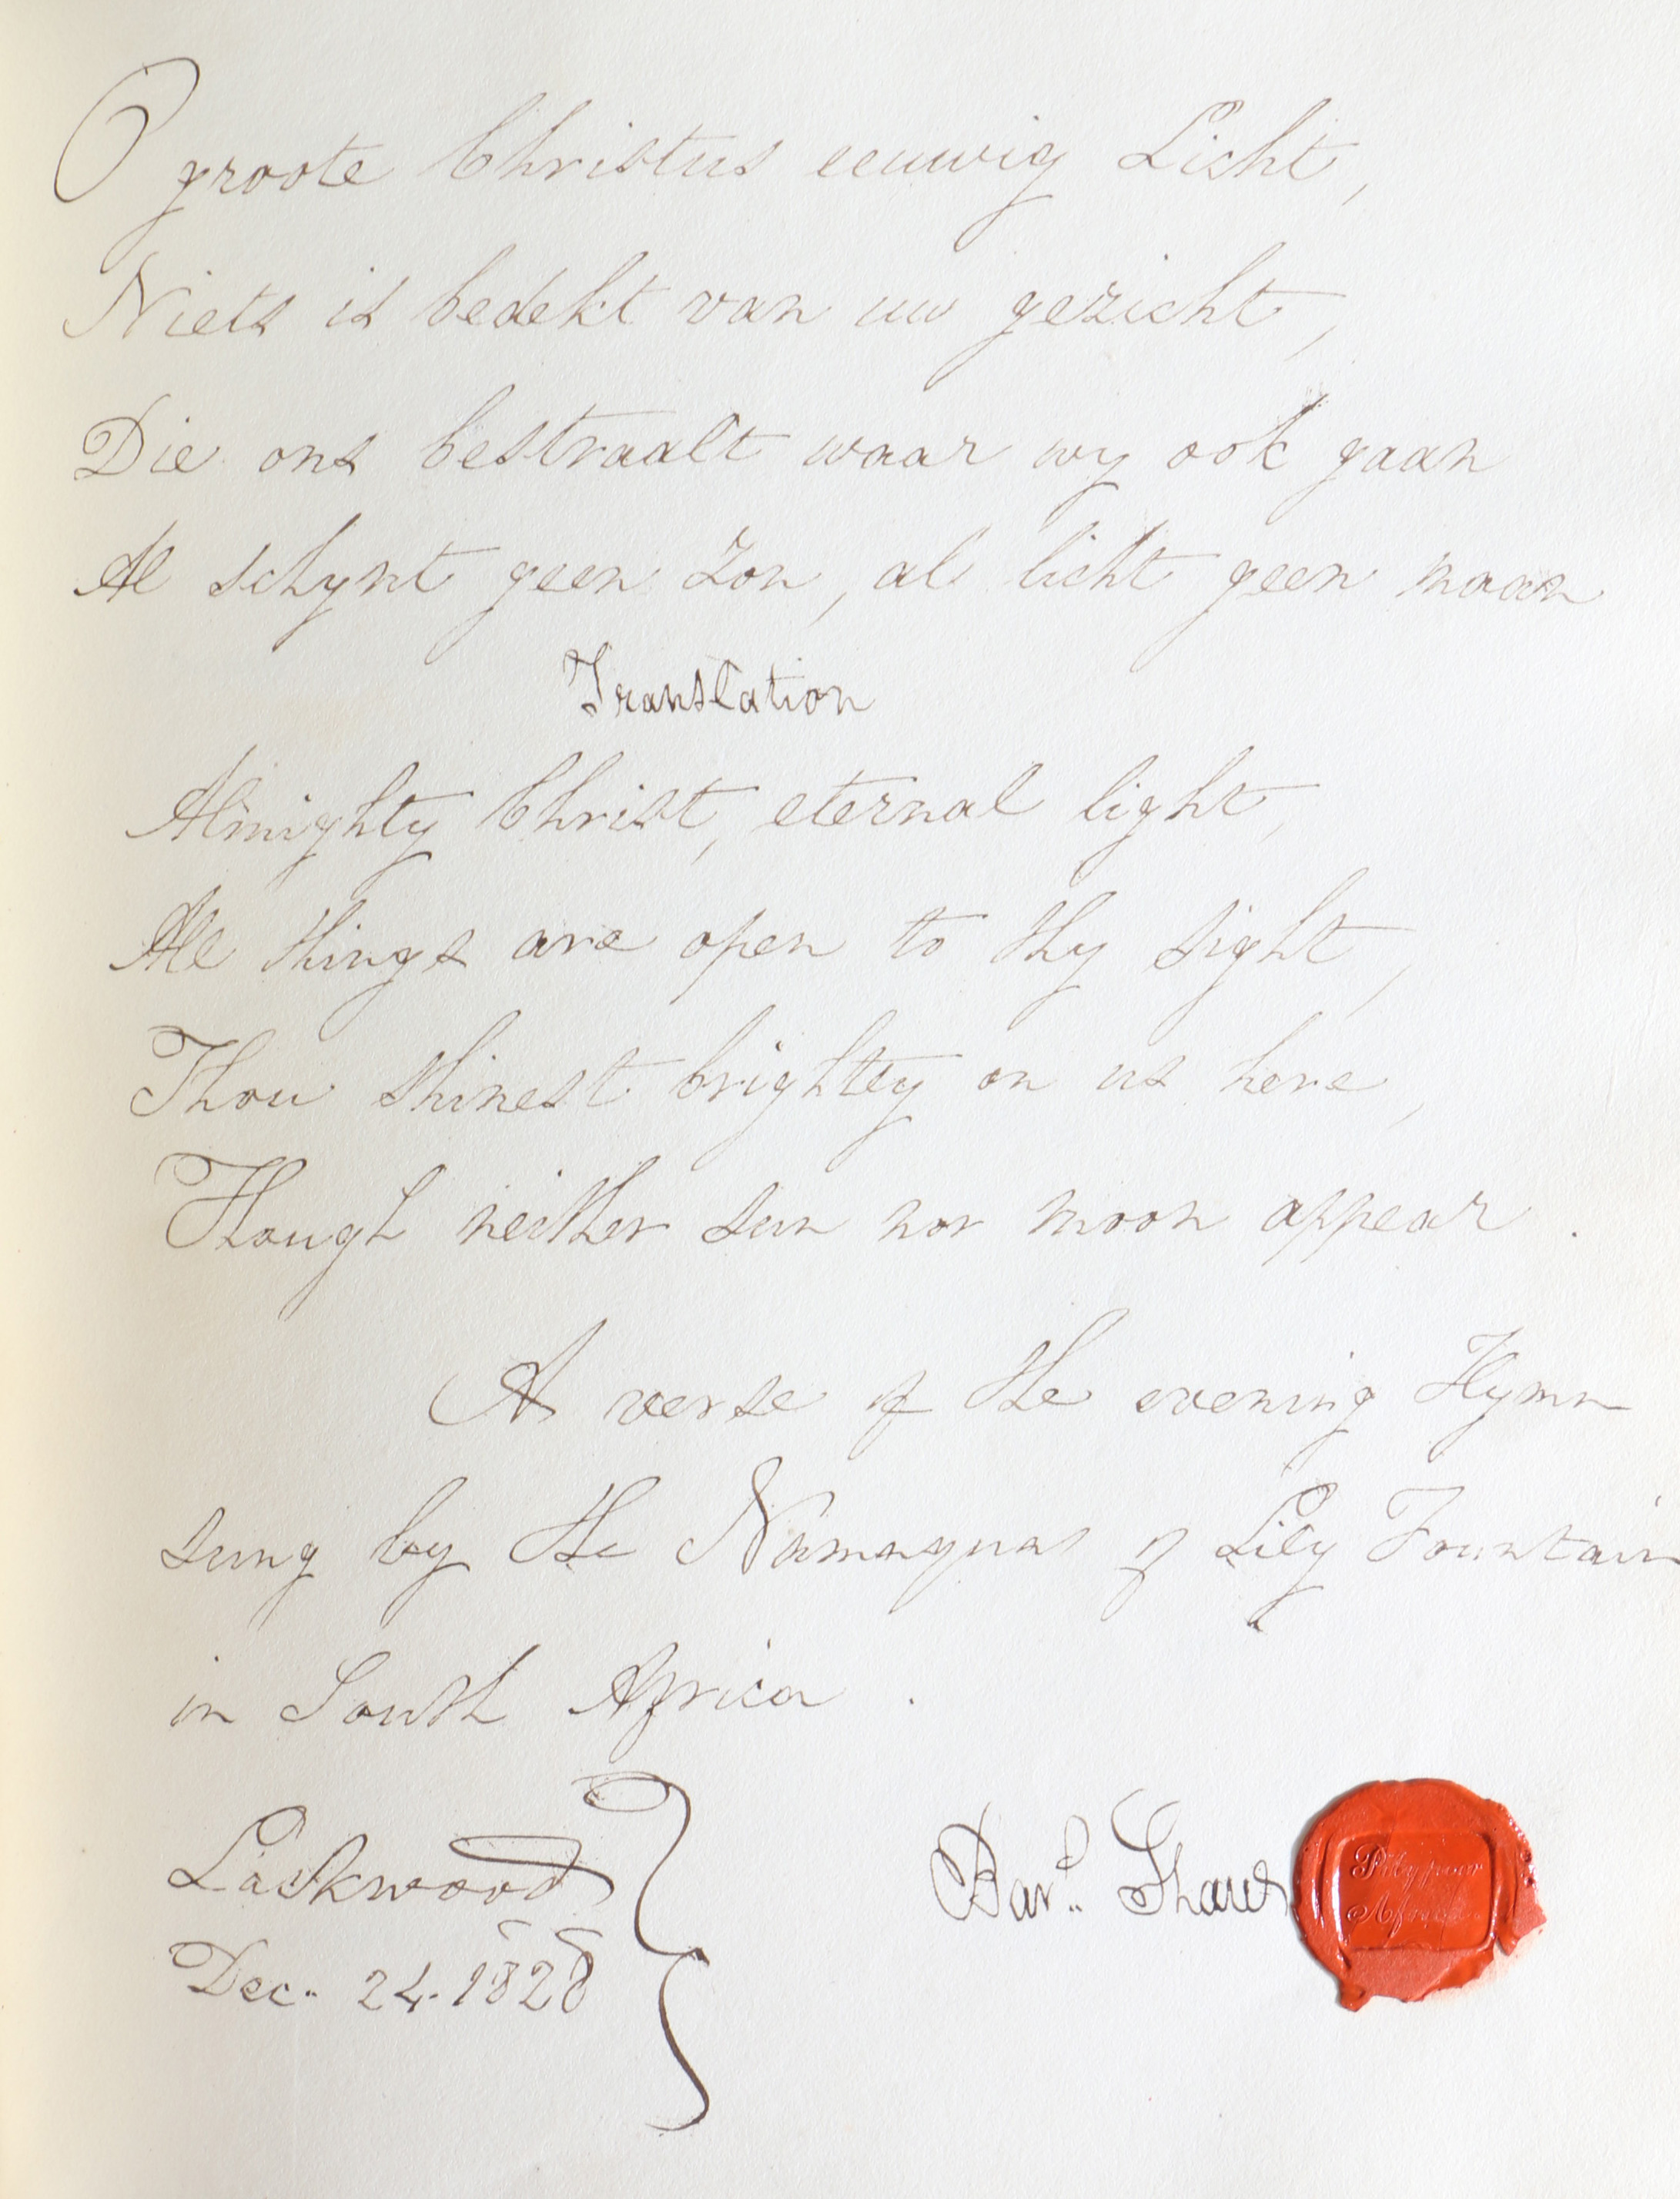 O groote Christus eeuwig Licht,
Niets is bedekt van uw gezicht,
Die ons bestraalt waar wy ook gaan
Al schynt geen zon, al licht geen maan
Translation
Almighty Christ, eternal light,
All things are open to thy sight,
Thou shinest brightly on us here,
Though neither sun nor moon appear.
A verse of the evening Hymn
sung by the Namaquas of Lily Fountain
in South Africa.
Dec. 24. 1828
Bar.d Shaw
Pity poor
Africa.